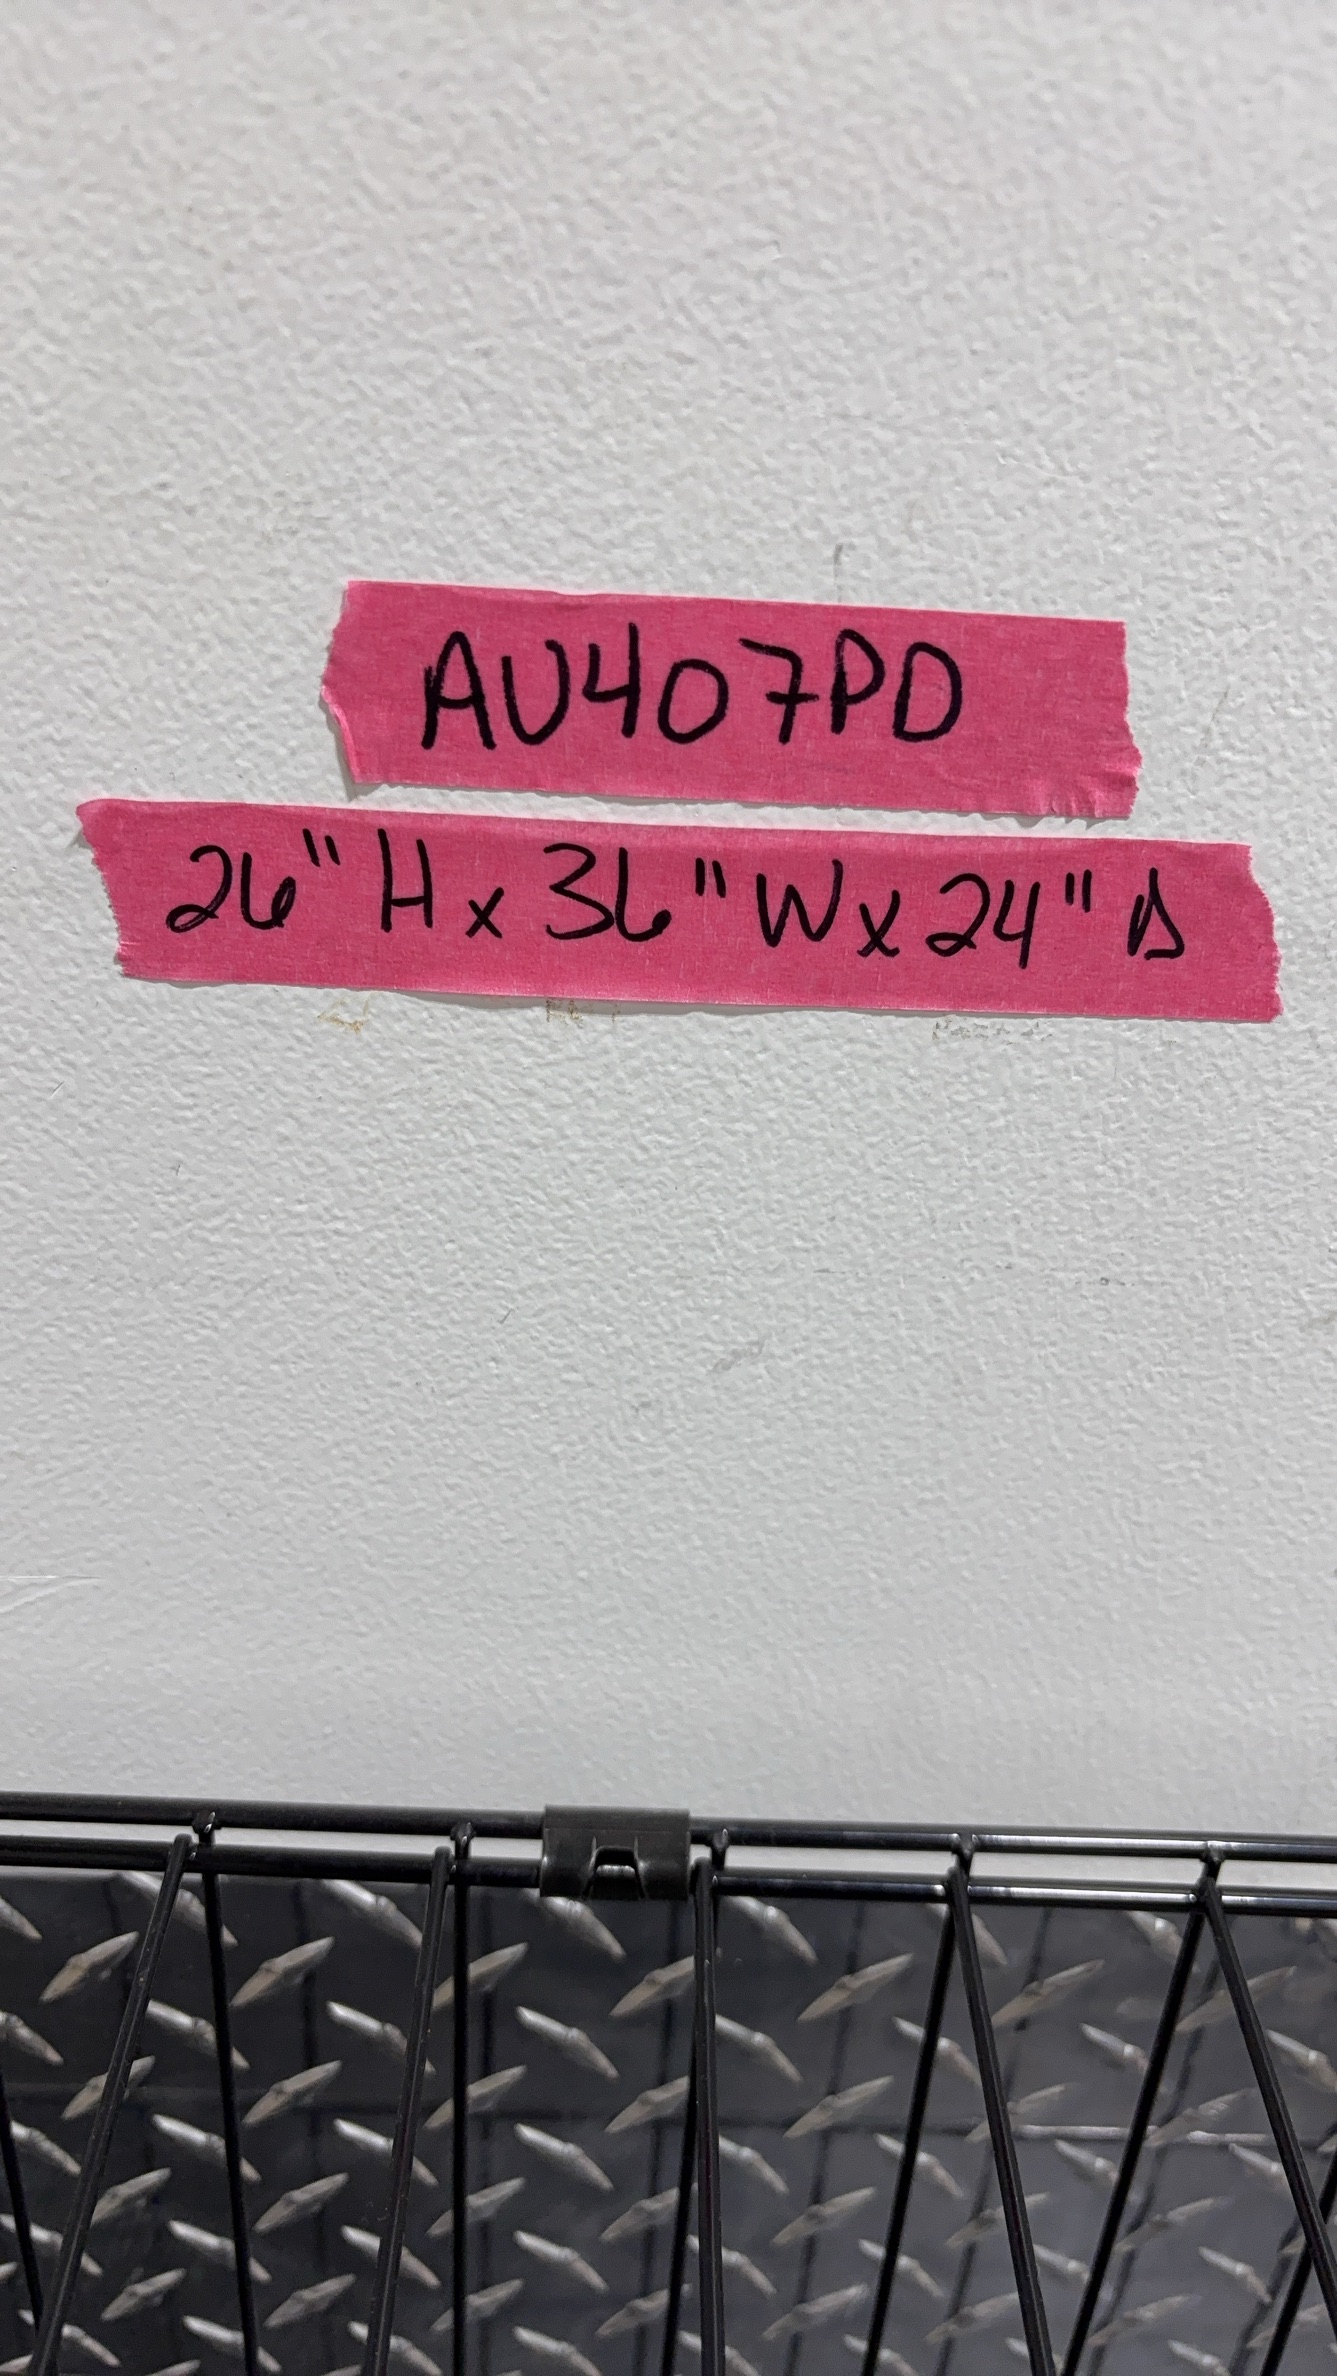 AU407PD
26" H x 36" W x 24" D